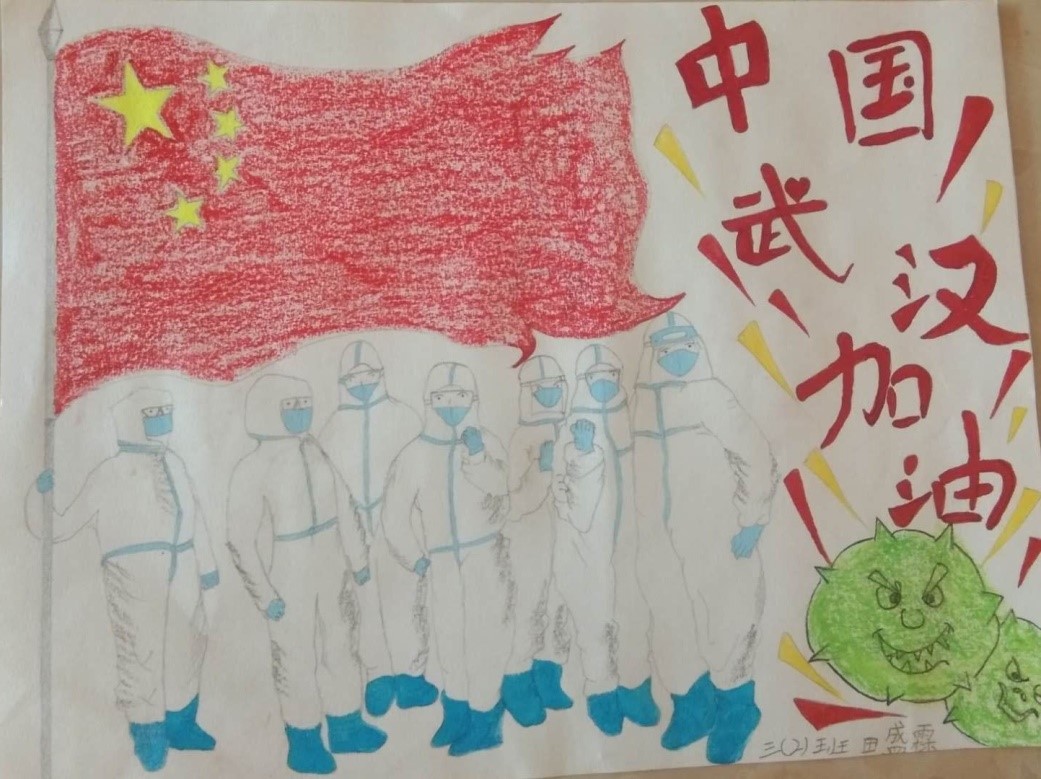 中国
武汉
加油
三(2)班 田盛霖